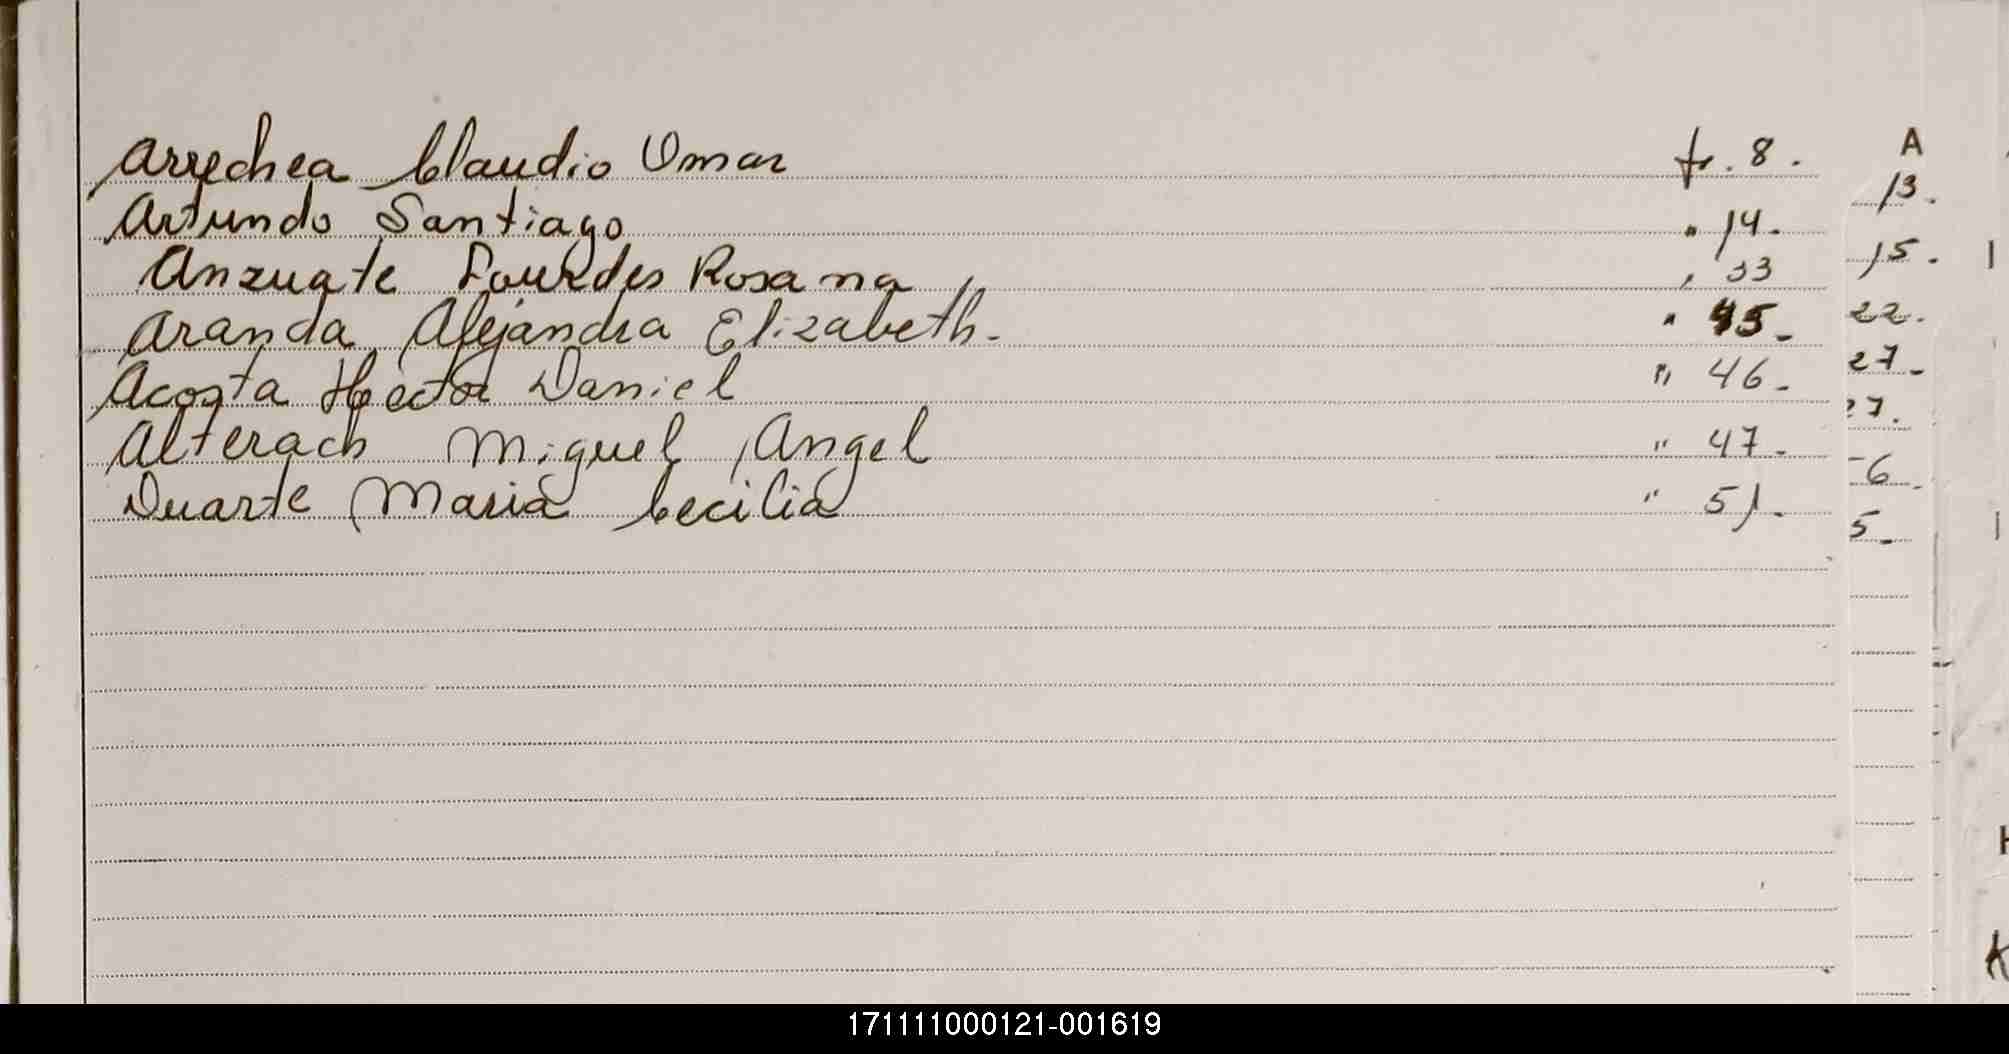 Arrechea Claudio Omar fs. 8.
Artundo Santiago " 14.
Anzuate Lourdes Rosana " 33
Aranda Alejandra Elizabeth. " 45.
Acosta Hector Daniel " 46.
Alterach Miguel Angel " 47.
Duarte Maria Cecilia " 51.
A
13.
15.
22.
27.
27.
6.
5.
171111000121-001619